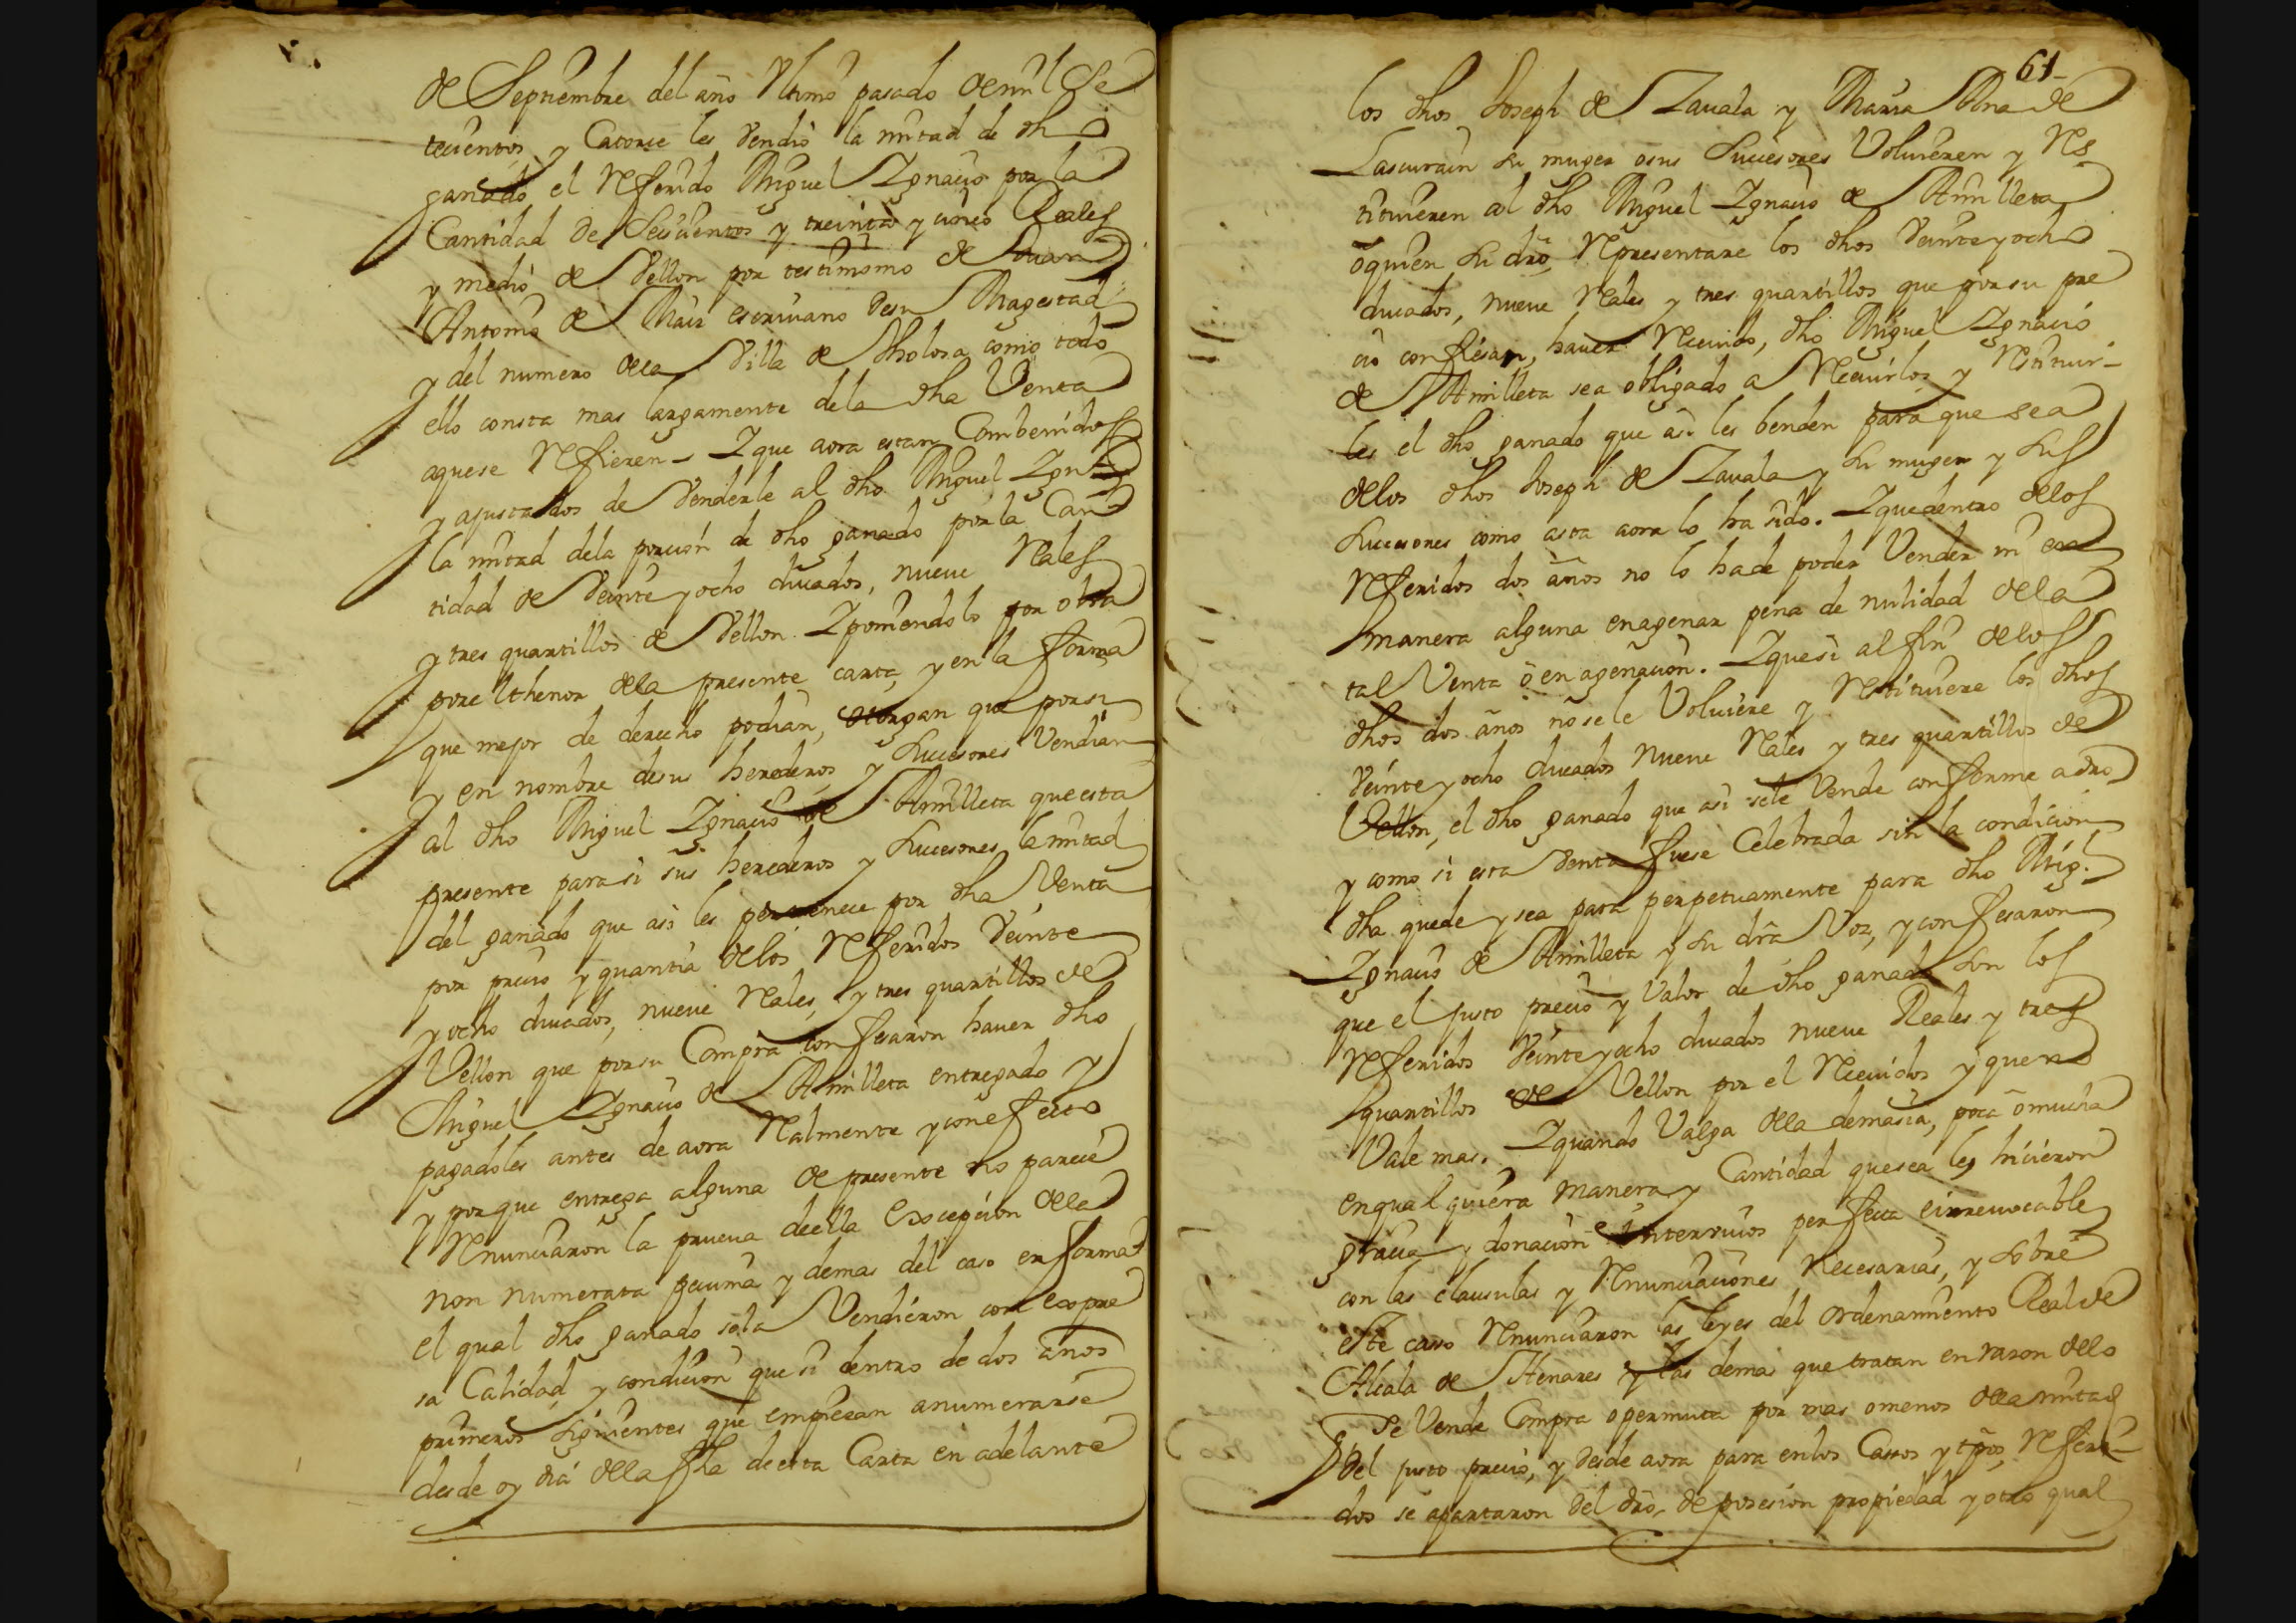 de Septiembre del año Ultimo pasado de mil Se
tecientos y Catorse les Vendió la mitad de dho
ganado el Referido Miguel Ygnacio por la
Cantidad de Seiscientos y treinta y cinco Reales
y medio de Vellon por testimonio de Juan
Antonio de Maiz escriuano de su Magestad
y del numero dela Villa de tholosa como todo
ello consta mas largamente dela dha Venta
aquese Refieren – Y que aora estan Combenidos
y ajustados de Venderle al dho Miguel Ygn.º
la mitad dela porcion de dho ganado por la Can
tidad de Veinte y ocho ducados, nueue Rales
y tres quartillos de Vellon. Y poniendolo por obra
por el thenor dela presente carta, y en la forma
que mejor de derecho podian, otorgan que por si
y en nombre de sus herederos y Sucesores Vendian
al dho Miguel Ygnacio de Amilleta que esta
presente para si sus herederos y Sucesores la mitad
del ganado que asi les pertenece por dha Venta
por precio y quantia delos Referidos Veinte
y ocho ducados, nueue Rales, y tres quartillos de
Vellon que por su Compra confesaron hauer dho
Miguel Ygnacio de Amilleta entregado y
pagadoles antes de aora Ralmente y con efecto
y por que entrega alguna de presente no parece
Renunciaron la prueua de ella Excepcion dela
non numerata pecunia y demas del caso en forma
el qual dho ganado sela Vendieron con expre
sa Calidad y condicion que si dentro de dos años
primeros siguientes que empiezan anumerarse
desde oy dia dela fha de esta Carta en adelante
61
los dhos Joseph de Zauala y Maria Ana de
Lascurain su muger o sus Sucesores Voluieren y Res
tituieren al dho Miguel Ygnacio de Amilleta
o quien su dro Representare los dhos Veinte y ocho
ducados, nueue Rales y tres quartillos que por su pre
cio confiesan, hauer Receuido, dho Miguel Ygnacio
de Amilleta sea obligado a Receuirlos y Restituir–
les el dho ganado que asi les benden para que sea
delos dhos Joseph de Zauala y su muger y sus
Sucesores como asta aora lo ha sido. Y que dentro delos
Referidos dos años no lo ha de poder Vender ni en
manera alguna enagenar pena de nulidad dela
tal Venta o enagenacion. Y que si al fin delos
dhos dos años no se le Voluiere y Restituiere los dhos
Veinte y ocho ducados Nueue Rales y tres quartillos de
Vellon, el dho ganado que asi se le Vende conforme a dro
y como si esta Venta fuese Celebrada sin la condicion
dha quede y sea para perpetuamente para dho Mig.l
Ygnacio de Amilleta y su dra Voz, y confesaron
que el justo precio y Valor de dho ganado son los
Referidos Veinte y ocho ducados nueue Reales y tres
quartillos de Vellon por el Receuidos y que no
Vale mas. Y quando Valga dela demasia, poca o mucha
en qualquiera manera y Cantidad que sea les hicieron
gracia y donacion interviuos perfecta e irreuocable
con las clausulas y Renunciaciones Necesarias, y sobre
este caso Renunciaron las leyes del ordenamiento Real de
Alcala de Henares y las demas que tratan en razon delo
Se Vende Compra o permuta por mas o menos dela mitad
del justo precio, y desde aora para en los Casos y tpos, Referi–
dos se apartaron del dro, de posesion propiedad y otro qual